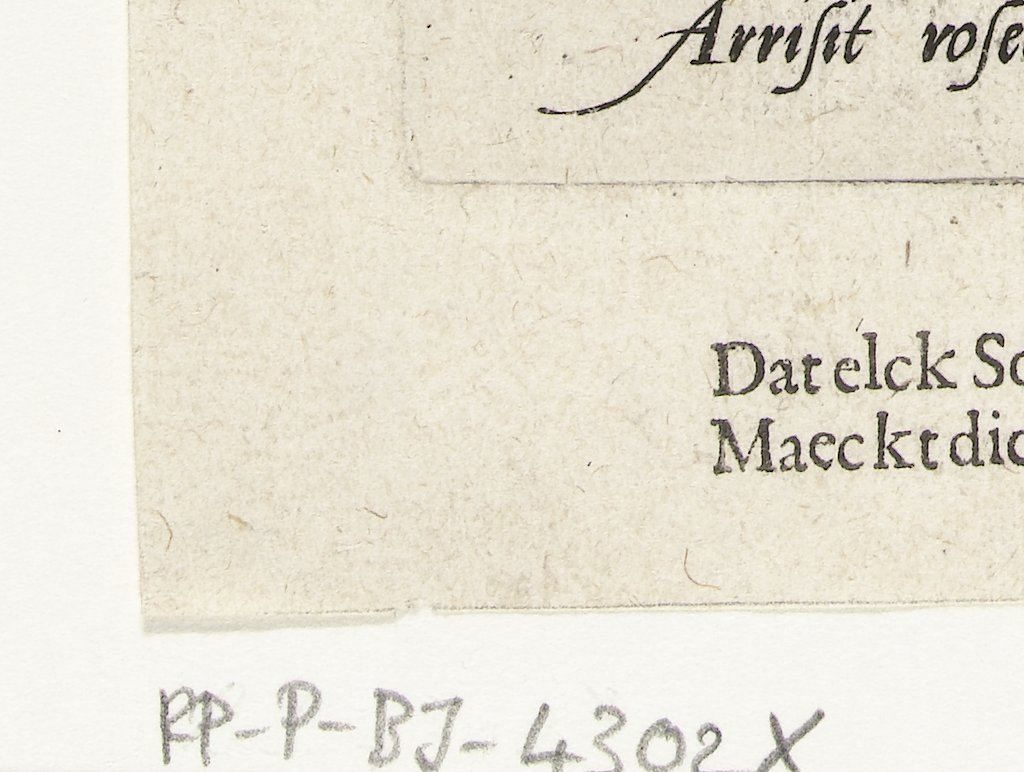 Arriſit roſe
Dat elck So
Maeckt dic
RP-P-BJ-4302X